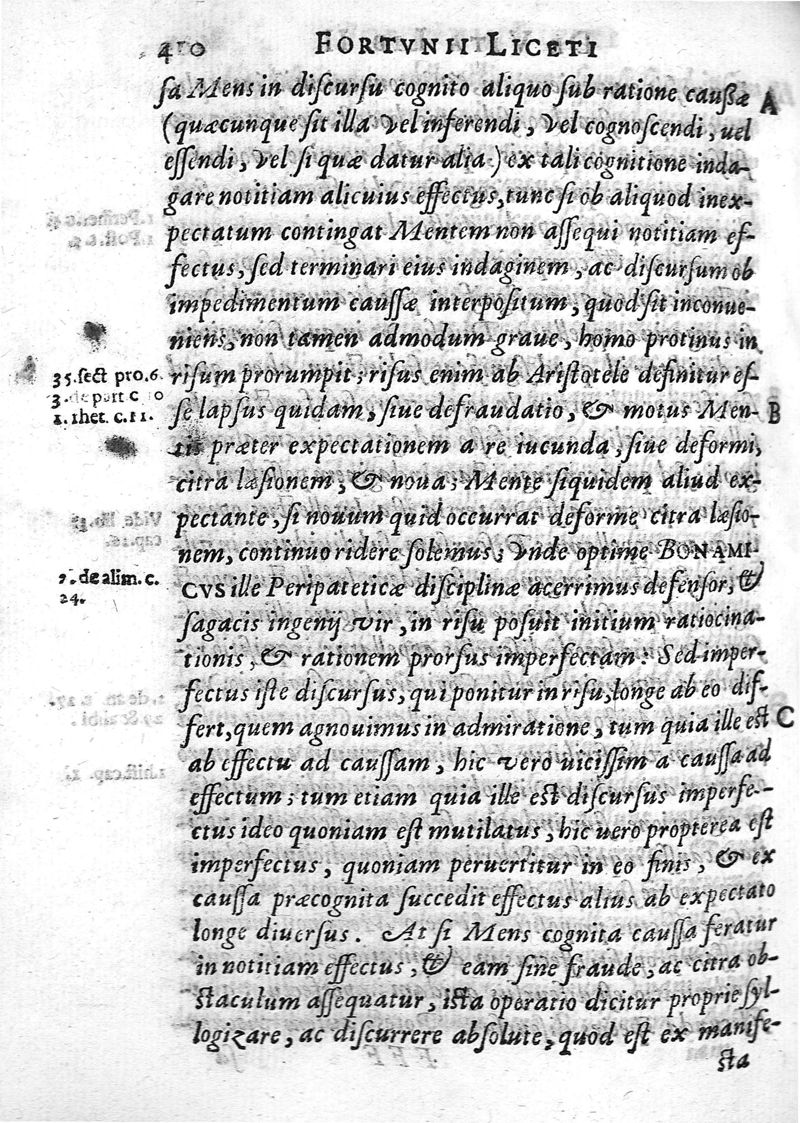 410 FORTVNII LICETI
sa Mens in discursu cognito aliquo sub ratione caussæ A
(quæcunque sit illa vel inferendi, vel cognoscendi, uel
essendi, vel si quæ datur alia) ex tali cognitione inda-
gare notitiam alicuius effectus, tunc si ob aliquod inex-
pectatum contingat Mentem non assequi notitiam ef-
fectus, sed terminari eius indaginem, ac discursum ob
impedimentum caussæ interpositum, quod sit inconue-
niens, non tamen admodum graue, homo protinus in
35. sect pro. 6. risum prorumpit; risus enim ab Aristotele definitur es-
3. de part c 10
1. rhet. c. 11. se lapsus quidam, siue defraudatio, & motus Men- B
tis præter expectationem a re iucunda, siue deformi,
citra læsionem, & noua; Mente siquidem aliud ex-
pectante, si nouum quid occurrat deforme citra læsio-
nem, continuo ridere solemus; vnde optime BONAMI-
de alim. c. CVS ille Peripateticæ disciplinæ acerrimus defensor, &
24. sagacis ingenij vir, in risu posuit initium ratiocina-
tionis, & rationem prorsus imperfectam: Sed imper-
fectus iste discursus, qui ponitur in risu, longe ab eo dif-
fert, quem agnouimus in admiratione, tum quia ille est C
ab effectu ad caussam, hic vero uicissim a caussa ad
effectum; tum etiam quia ille est discursus imperfe-
ctus ideo quoniam est mutilatus, hic uero propterea est
imperfectus, quoniam peruertitur in eo finis, & ex
caussa præcognita succedit effectus alius ab expectato
longe diuersus. At si Mens cognita caussa feratur
in notitiam effectus, & eam sine fraude, ac citra ob-
staculum assequatur, ista operatio dicitur proprie syl-
logizare, ac discurrere absolute, quod est ex manife-
sta